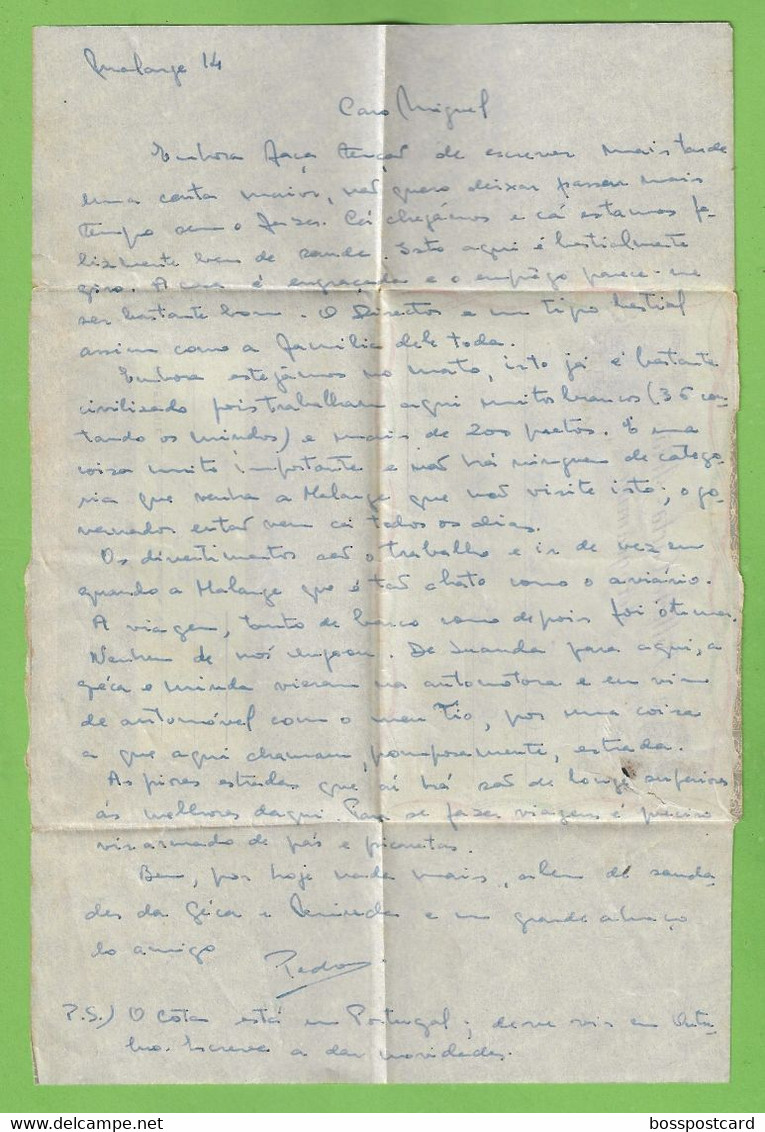 Malange 14
Caro Miguel
Embora faça tenção de escrever mais tarde
uma carta maior, não quero deixar passar mais
tempo sem o fazer. Cá chegámos e cá estamos fe-
lizmente bem de saude. Isto aqui é bestialmente
giro. A casa é engraçada e o emprêgo parece-me
ser bastante bom. O Director é um tipo bestial
assim como a familia dele toda.
Embora estejamos no mato, isto já é bastante
civilizado pois trabalham aqui muitos brancos (36 con-
tando os miudos) e mais de 200 pretos. É uma
coisa muito importante e não há ninguem de catego-
ria que venha a Malange que não visite isto; o go-
vernador então vem cá todos os dias.
Os divertimentos são o trabalho e ir de vez em
quando a Malange que é tão chato como o aviário.
A viagem, tanto de barco como depois foi óptima.
Nenhum de nós enjoou. De Luanda para aqui, a
Géca e miuda vieram na automotora e eu vim
de automóvel com o meu Tio, por uma coisa
a que aqui chamam, pomposamente, estrada.
As piores estradas que aí há são de longe superiores
ás melhores daqui. Para se fazer viagens é preciso
vir armado de pás e picaretas.
Bem, por hoje nada mais, alem de sauda-
des da Géca e e um grande abraço
do amigo
Pedro
P.S.) O Cota está em Portugal; deve vir em Outu-
bro. Escreve a dar novidades.
bosspostcard